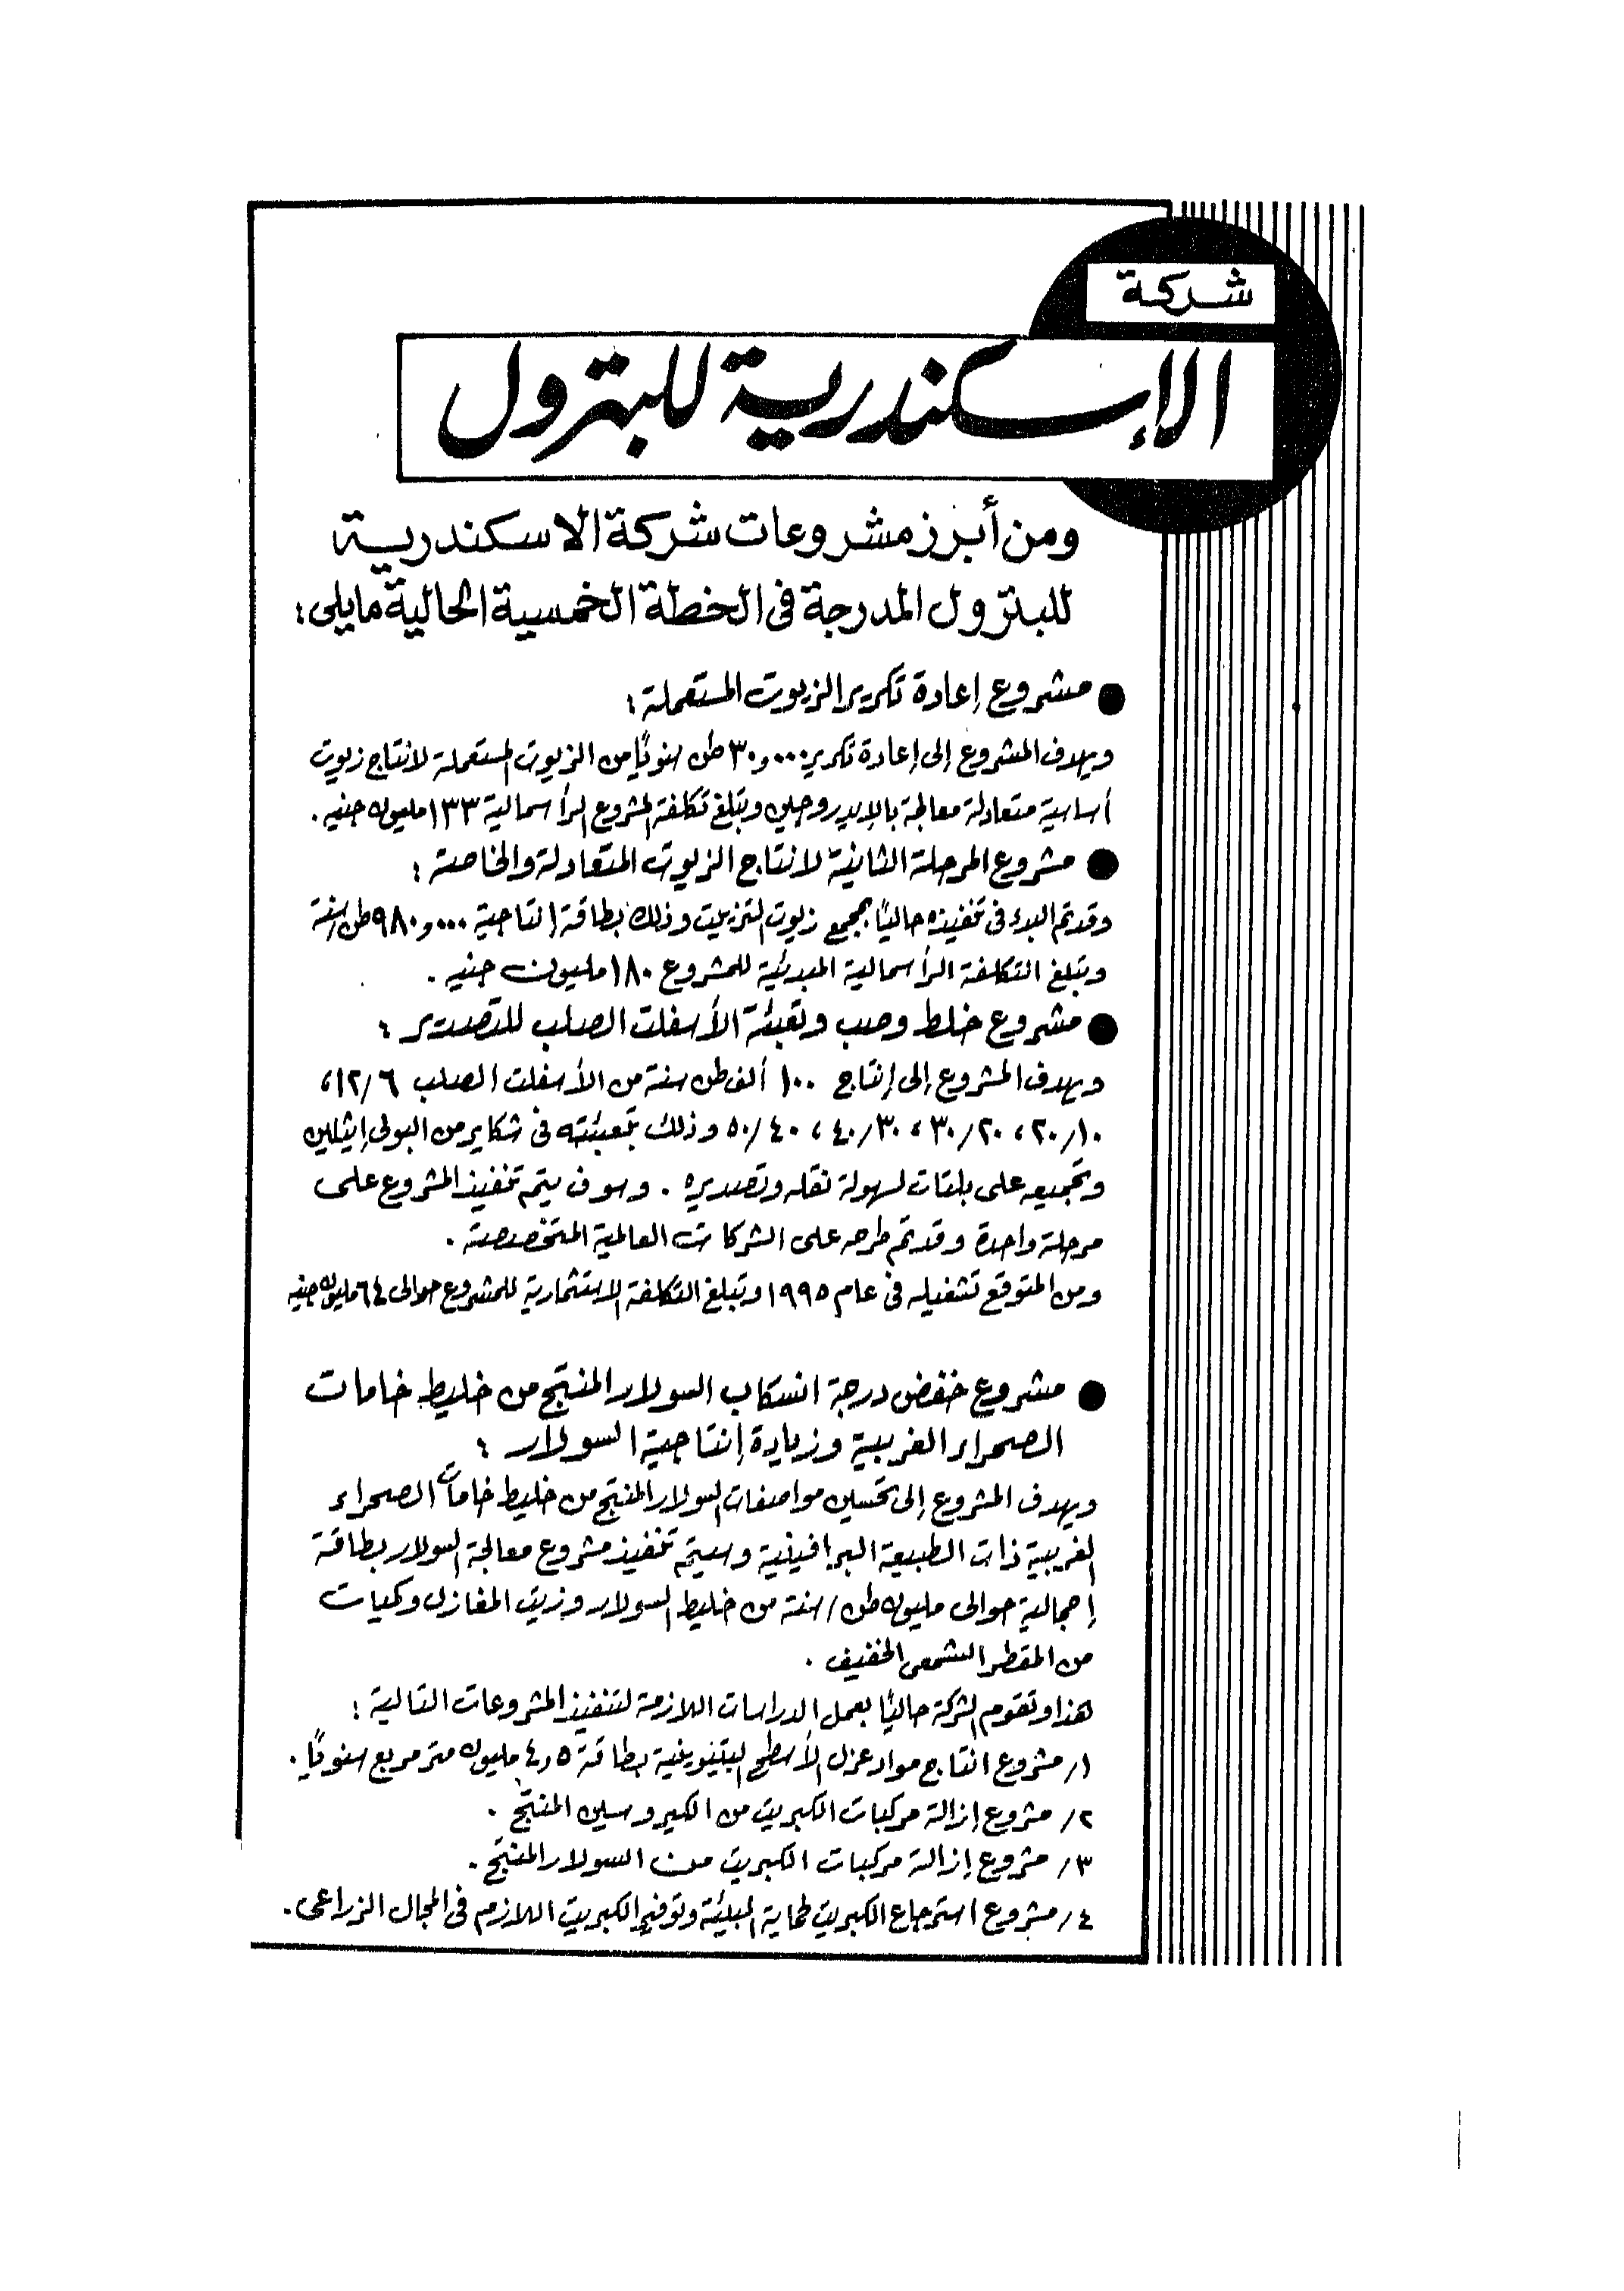 شركة
الإسكندرية للبترول
ومن أبرز مشروعات شركة الاسكندرية
للبترول المدرجة فى الخطة الخمسية الحالية مايلى :
● مشروع إعادة تكرير الزيوت المستعملة :
ويهدف المشروع إلى إعادة تكرير ٣٠٠٠٠ طن سنويًا من الزيوت المستعملة لانتاج زيوت
أساسية متعادلة معالجة بالايدروجين وتبلغ تكلفة المشروع الرأسمالية ١٣٣ مليون جنيه .
● مشروع المرحلة الثانية لانتاج الزيوت المتعادلة والخاصة :
وقد تم البدء فى تنفيذه حاليًا بمجمع زيوت التزييت وذلك بطاقة إنتاجية ٠٠٠و٩٨٠ طن/سنة
وتبلغ التكلفة الرأسمالية المبدئية للمشروع ١٨٠ مليون جنيه .
● مشروع خلط وصب وتعبئة الأسفلت الصلب للتصدير :
ويهدف المشروع إلى إنتاج ١٠٠ ألف طن سنة من الأسفلت الصلب ١٢/٦ ،
٢٠/١٠ ، ٣٠/٢٠ ، ٤٠/٣٠ ، ٥٠/٤٠ وذلك بتعبئته فى شكاير من البولى إيثلين
وتجميعه على بلتات لسهولة نقله وتصديره . وسوف يتم تنفيذ المشروع على
مرحلة واحدة وقد تم طرحه على الشركات العالمية المتخصصة .
ومن المتوقع تشغيله فى عام ١٩٩٥ وتبلغ التكلفة الاستثمارية للمشروع حوالى ٦٤ مليون جنيه
● مشروع خفض درجة انسكاب السولار المنتج من خليط خامات
الصحراء الغربية وزيادة إنتاجية السولار :
ويهدف المشروع إلى تحسين مواصفات السولار المنتج من خليط خامات الصحراء
الغربية ذات الطبيعة البرافينية وسيتم تنفيذ مشروع معالجة السولار بطاقة
إجمالية حوالى مليون طن / سنة من خليط السولار وزيت المغازل وكميات
من المقطر الشمعى الخفيف .
هذا وتقوم الشركة حاليًا بعمل الدراسات اللازمة لتنفيذ المشروعات التالية :
١/ مشروع انتاج مواد عزل الأسطح البيتومينية بطاقة ٥ر٤ مليون متر مربع سنويًا .
٢/ مشروع إزالة مركبات الكبريت من الكيروسين المنتج .
٣/ مشروع إزالة مركبات الكبريت من السولار المنتج .
٤/ مشروع استرجاع الكبريت لحماية البيئة وتوفير الكبريت اللازم فى المجال الزراعى .